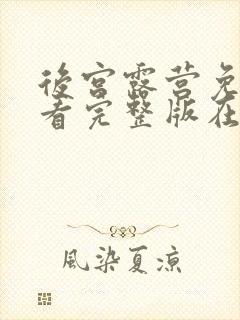 後宫露营免
看完整版在
風染夏凉